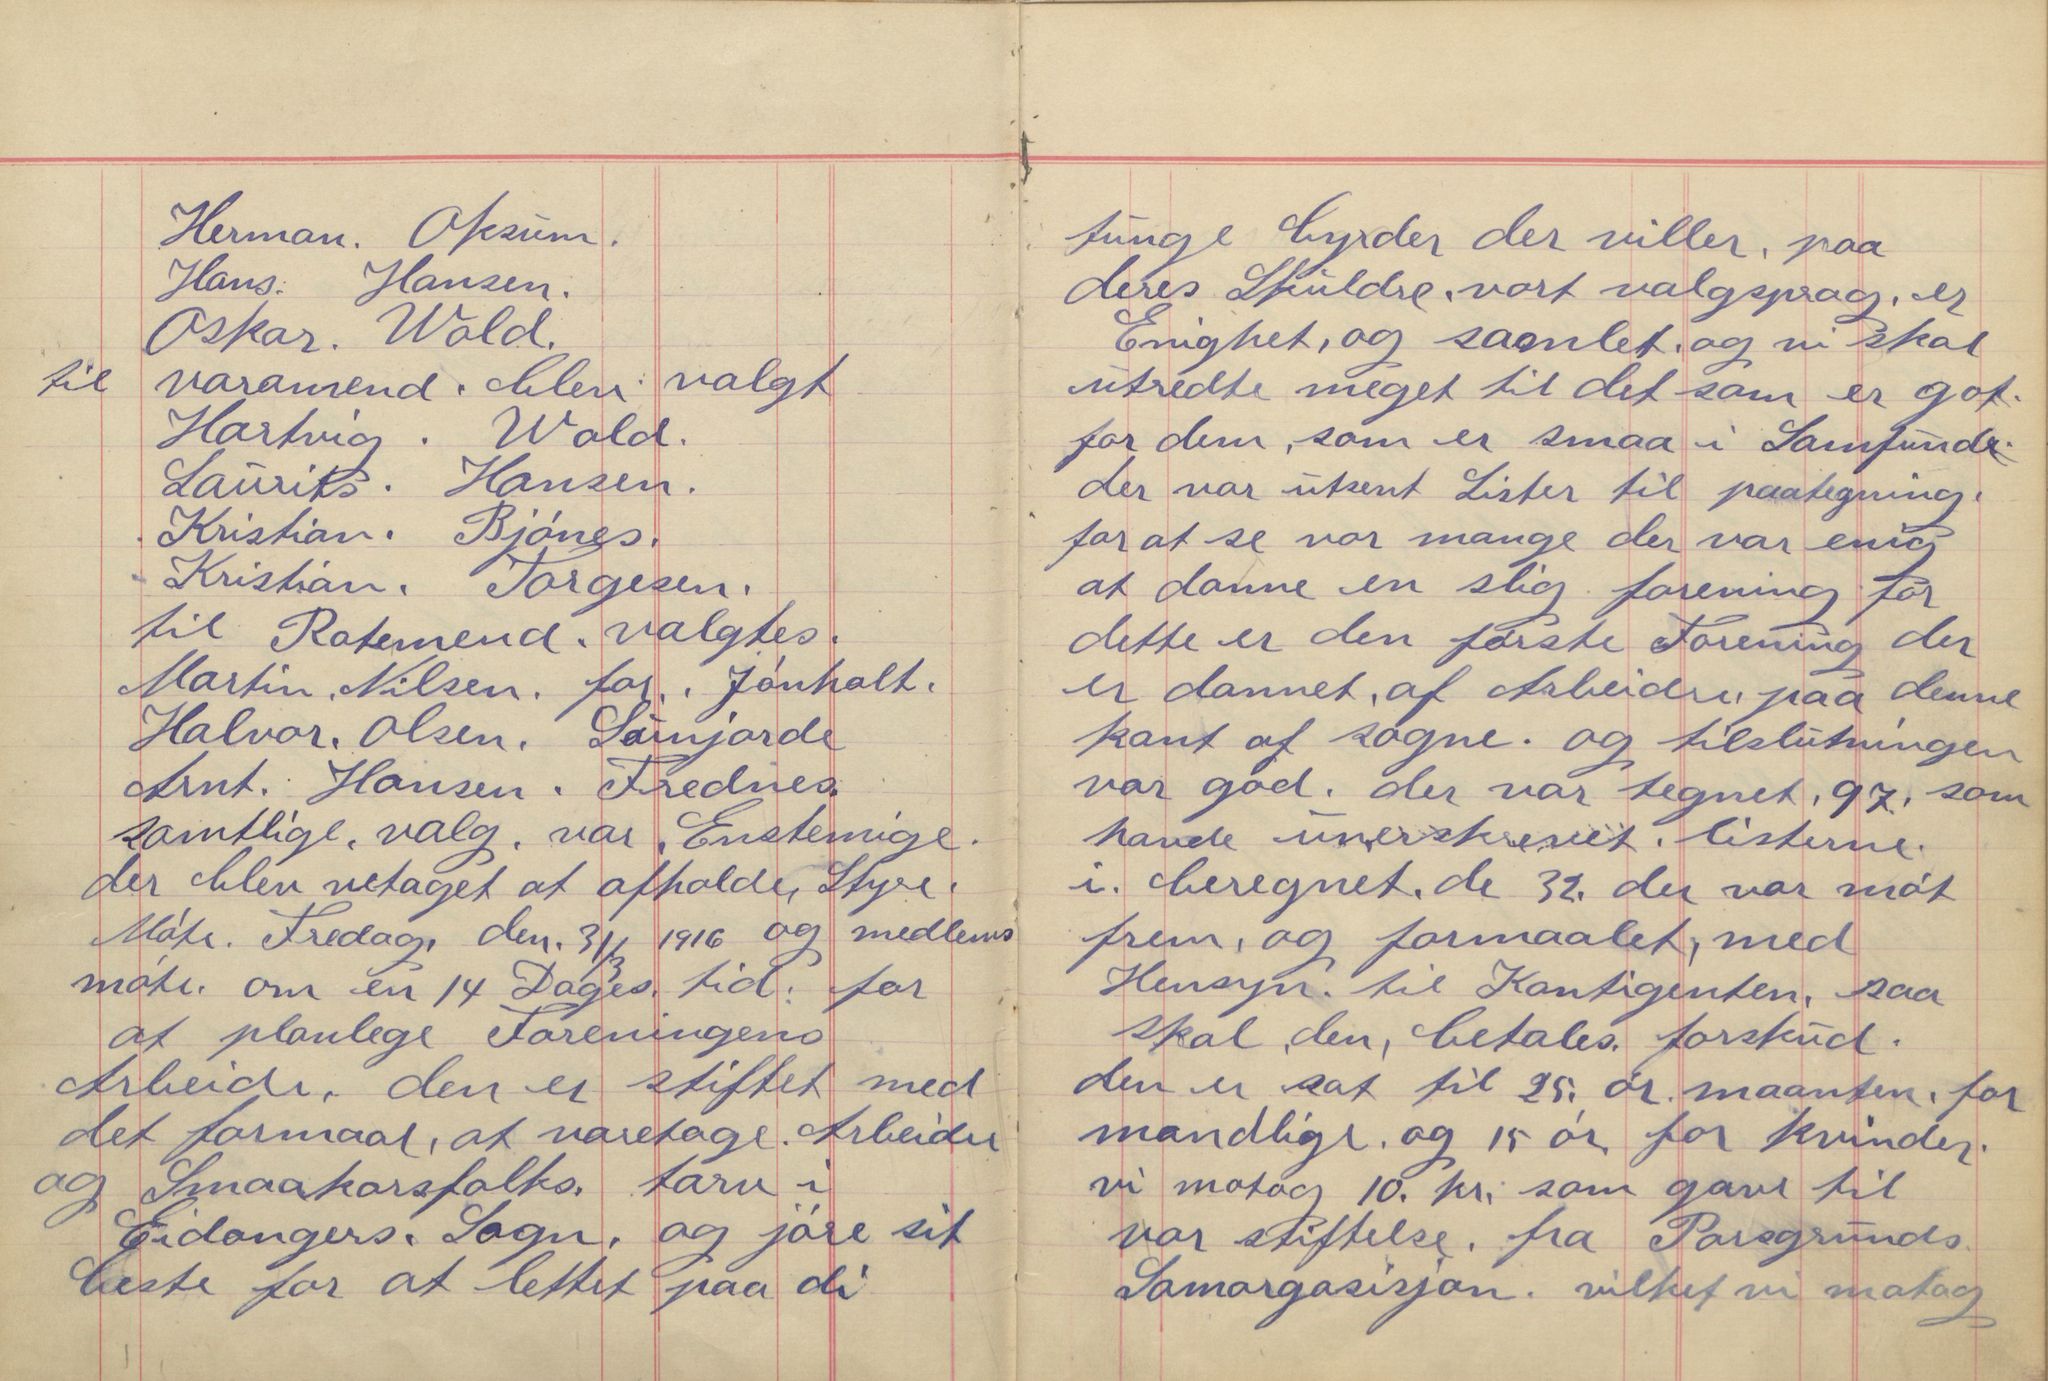 Herman. Oksum.
Hans. Hansen.
Oskar. Wold.
til varamend. blev valgt
Hartvig. Wold.
Laurits. Hansen.
Kristian. Bjónes.
Kristian. Torgesen.
til Rotemend. valgtes.
Martin. Nilsen. for. Jónholt.
Halvor. Olsen.
Arnt. Hansen. Frednes.
samtlige. valg. var. Enstemige.
der blev vetaget at afholde, Styre.
Móte. Fredag. den. 31/3 1916 og medlems
móte. om en 14 Dages. tid. for
at planlege Foreningens
Arbeide. den er stiftet med
det formaal, at varetage. Arbeider
og Smaakarsfolks. tarv i
Eidangers. Sogn. og jóre sit
beste for at lettet paa di
tunge byrder der viller, paa
deres Skuldre. vort valgsprag. er
Enighet, og samlet. og vi skal
utredte meget til det som er got.
for dem, som er smaa i Samfunde.
der var utsent Lister til paategning.
for at se vor mange der var enig
at danne en slig forening for
dette er den fórste Forening der
er dannet, af Arbeidere, paa denne
kant af sogne. og tilslutningen
var god. der var tegnet, 97, som
havde unerskrevet. listerne.
i. beregnet. de 32. der var mót
frem, og formaalet, med
Hensyn. til Kontigenten, saa
skal, den, betales. forskud.
den er sat til 25. ór. maanten. for
mandlige. og 15 ór. for kvinder.
vi motog 10. kr. som gave til
vor stiftelse. fra Porsgrunds
Samorgasisjon. vilket vi motog